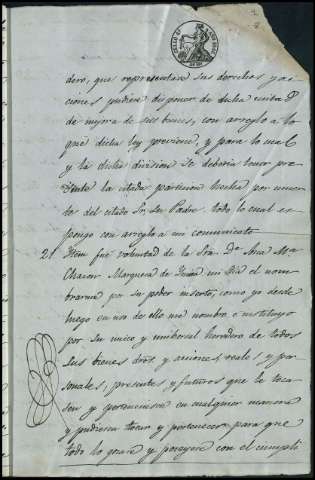 dero, que representare sus derechos y ac
ciones pudiese disponer de dicha quinta
de mejora de sus bienes, con arreglo a lo
que dicha ley previene y para lo cual
y la dicha division se deberia tener pre
sente la citada particion hecha por muer
te del citado Sr. su Padre. todo lo cual es
pongo con arreglo a mi comunicato
2. Item fue voluntad de la Sra. Da. Ana Ma.
Chacon Marquesa de mi tia el nom
brarme por su poder inserto, como yo desde
luego en uso de ello me nombro e instituyo
por su unico y universal heredero de todos
sus bienes dros y acciones, reales, y per
sonales, presentes, y futuros que le toca
sen y perteneciesen en cualquier manera
y pudieran tocar y pertenecer para que
todo lo goze y posea con el cumpli